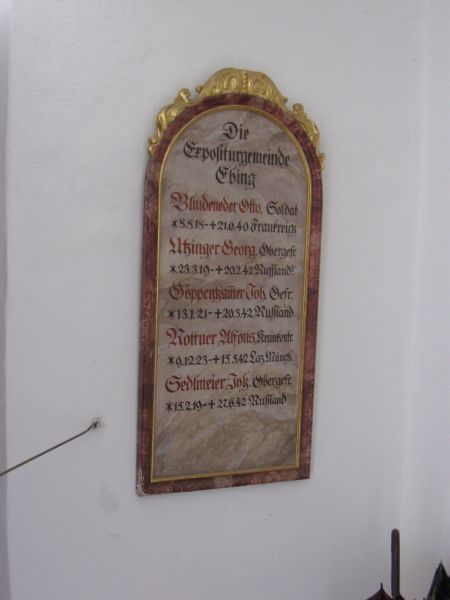 Die
Expositurgemeinde
Ebing
Blindeneder Otto, Soldat
*8.8.18-+21.6.40 Frankreich
Utzinger Georg, Obergefr.
*23.3.19-+20.2.42 Russland
Göppenham̄er Joh. Gefr.
*13.1.21-+20.3.42 Russland
Rottner Alfons, Krankentr.
*9.12.23-+15.5.42 Laz. Münch.
Sedlmeier Joh. Obergefr.
*15.2.19-+27.6.42 Russland